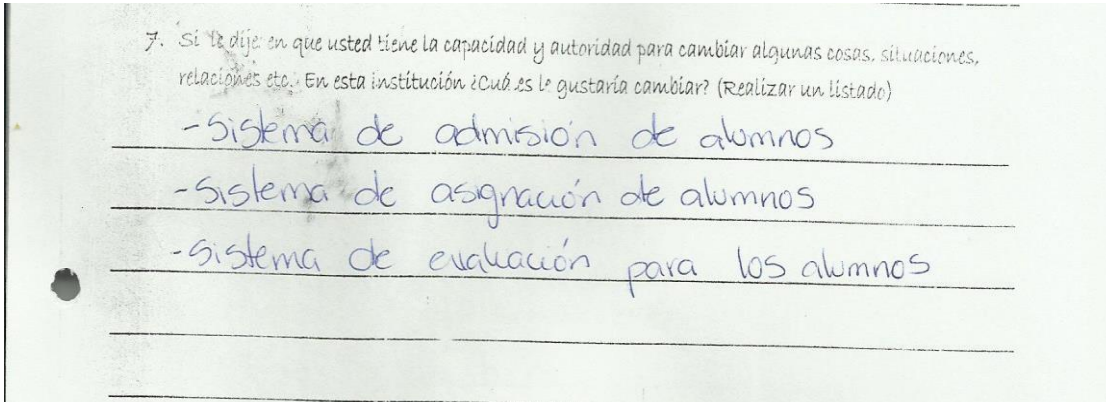 7. Si le dijeren que usted tiene la capacidad y autoridad para cambiar algunas cosas, situaciones,
relaciones etc. En esta institución ¿Cuáles le gustaría cambiar? (Realizar un listado)
- Sistema de admisión de alumnos
- Sistema de asignación de alumnos
- Sistema de evaluación para los alumnos